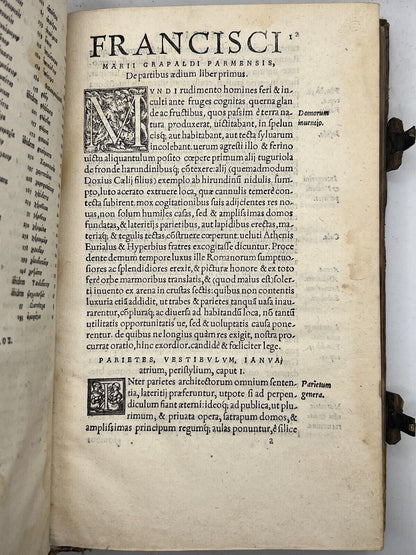 FRANCISCI
MARII GRAPALDI PARMENSIS,
De partibus ædium liber primus.
MVNDI rudimento homines feri & in
culti ante fruges cognitas, querna glan
de ac fructibus, quos passim è terra natu
ra produxerat, uictitabant, in spelun
cisq; aut habitabant, aut tecta syluarum
incolebant. uerum agresti illo & ferino
uictu aliquantulum posito cœpere primum alij tuguriola
de fronde harundinibusq; texere: alij (quemadmodum
Doxius Cælij filius) exemplo ab hirundinū nidulis, sump
to, luto acerato extruere loca, quæ cannulis temerè con
tecta subirent. mox cogitationibus suis adijcientes res no
uas, non solum humiles casas, sed & amplissimas domos
fundatas, & lateritijs parietibus, aut lapidibus erectas, ma
teriaq; & tegulis tectas cōstruere cœperunt. ueluti Athenis
Eurialus & Hyperbius fratres excogitasse dicuntur. Proce
dente demum tempore luxus ille Romanorum sumptuo
siores ac splendidiores erexit, & pictura honore & ex toto
ferè orbe marmoribus translatis, & (quod malus est) soler
ti inuento ex arena in crustas sectis: quibus non contenti
luxuria etiā addidit, ut trabes & parietes tanquā uasa inaura
rent, cōpluraq; ac diuersa ad habitandū loca, nō tantū
utilitatis opportunitatis ue, sed & uoluptatis causa pone
rentur. de quibus ne longius quàm res exegerit, nostra pro
currat oratio, hinc exordior. candidè & fœliciter lege.
PARIETES, VESTIBVLVM, IANVA,
atrium, peristylium, caput I.
INter parietes architectorum omnium senten
tia, lateritij præferuntur, utpote si ad perpen
diculum fiant æterni: ideoq; ad publica, ut plu
rimum, & priuata opera, satrapum domos, &
amplissimas principum regumq; aulas ponuntur, è silice
Domorum
inuentio.
Parietum
genera.
2